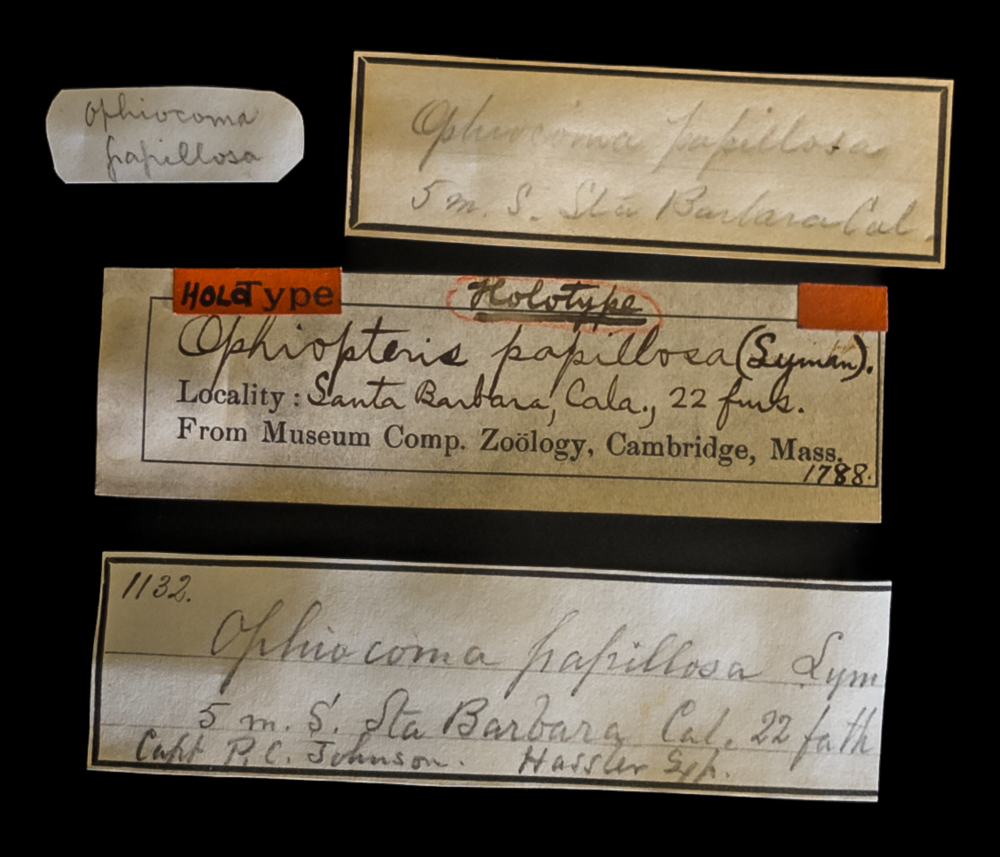 Ophiocoma
papillosa
Ophiocoma papillosa
5 m. S. Sta Barbara Cal.
HOLOType
Holotype
Ophiopteris papillosa (Lyman).
Locality: Santa Barbara, Cala., 22 fms.
From Museum Comp. Zoölogy, Cambridge, Mass.
1788.
1132.
Ophiocoma papillosa Lym
5 m. S. Sta Barbara Cal. 22 fath
Capt P. C. Johnson. Hassler Exp.